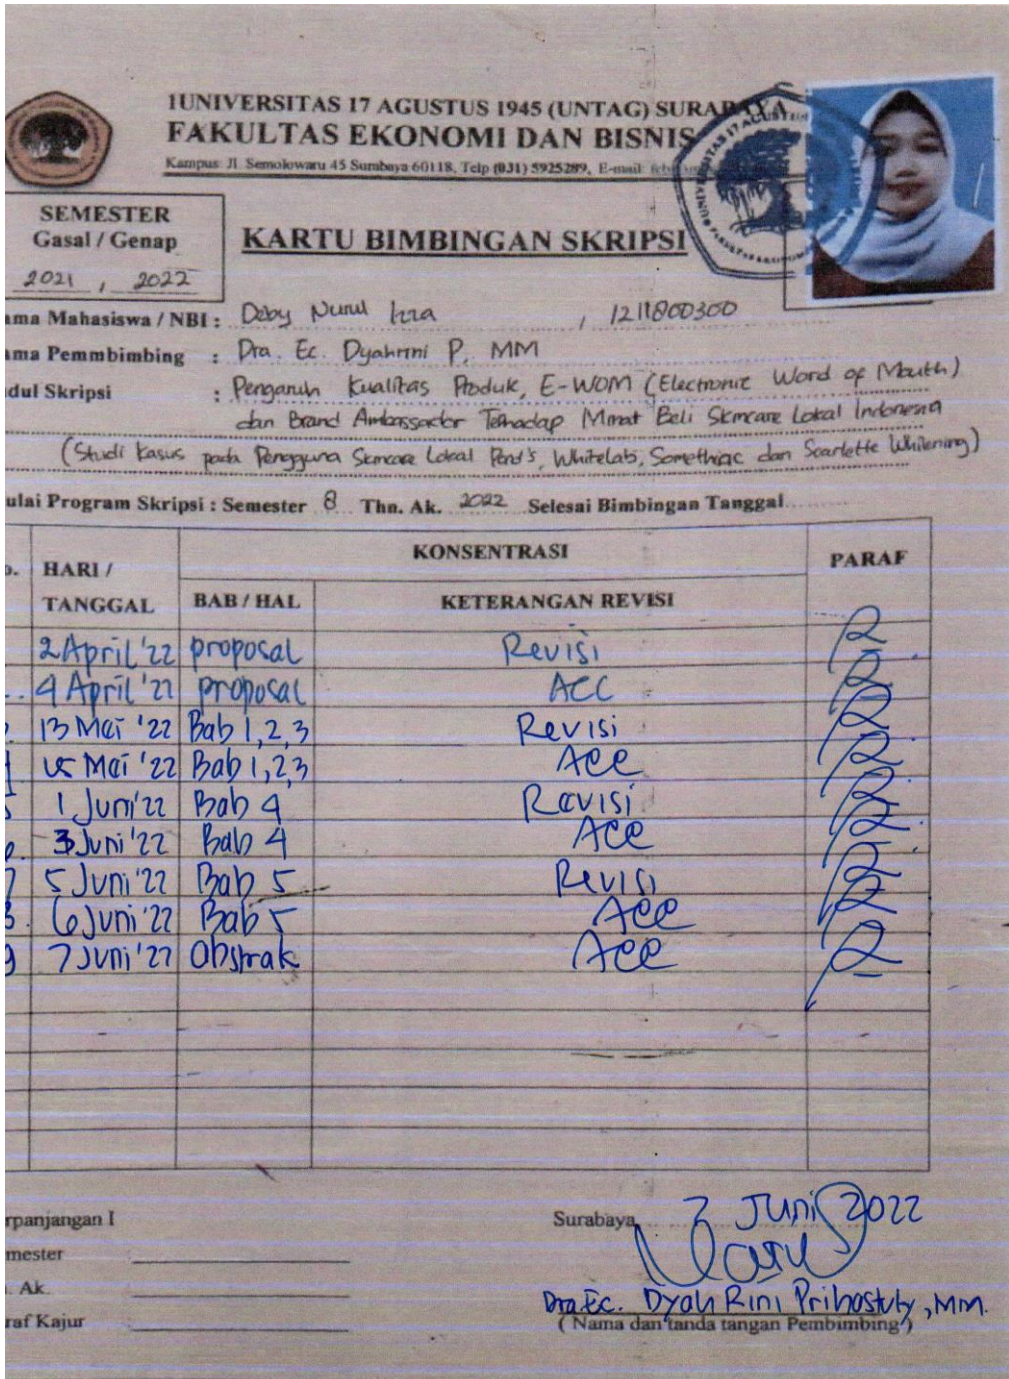 1UNIVERSITAS 17 AGUSTUS 1945 (UNTAG) SURABAYA
FAKULTAS EKONOMI DAN BISNIS
Kampus: Jl. Semolowaru 45 Surabaya 60118, Telp (031) 5925289, E-mail:
SEMESTER
Gasal / Genap
2021 , 2022
KARTU BIMBINGAN SKRIPSI
ama Mahasiswa / NBI : Deby Nurul Izza , 1211800300
ama Pemmbimbing : Dra. Ec. Dyahrini P, MM
dul Skripsi : Pengaruh Kualitas Produk, E-WOM (Electronic Word of Mouth)
dan Brand Ambassador Terhadap Minat Beli Skincare Lokal Indonesia
(Studi Kasus pada Pengguna Skincare Lokal Pond's, Whitelab, Somethinc dan Scarlette Whitening)
ulai Program Skripsi : Semester 8 Thn. Ak. 2022 Selesai Bimbingan Tanggal
o. HARI / TANGGAL KONSENTRASI PARAF
BAB / HAL KETERANGAN REVISI
2 April '22 proposal Revisi
4 April '22 proposal ACC
13 Mei '22 Bab 1,2,3 Revisi
15 Mei '22 Bab 1,2,3 Acc
1 Juni '22 Bab 4 Revisi
3 Juni '22 Bab 4 Acc
5 Juni '22 Bab 5 Revisi
6 Juni '22 Bab 5 Acc
7 Juni '22 Obstrak Acc
rpanjangan I
mester
. Ak.
raf Kajur
Surabaya, 7 Juni 2022
Dra.Ec. Dyah Rini Prihastuty, MM.
( Nama dan tanda tangan Pembimbing )